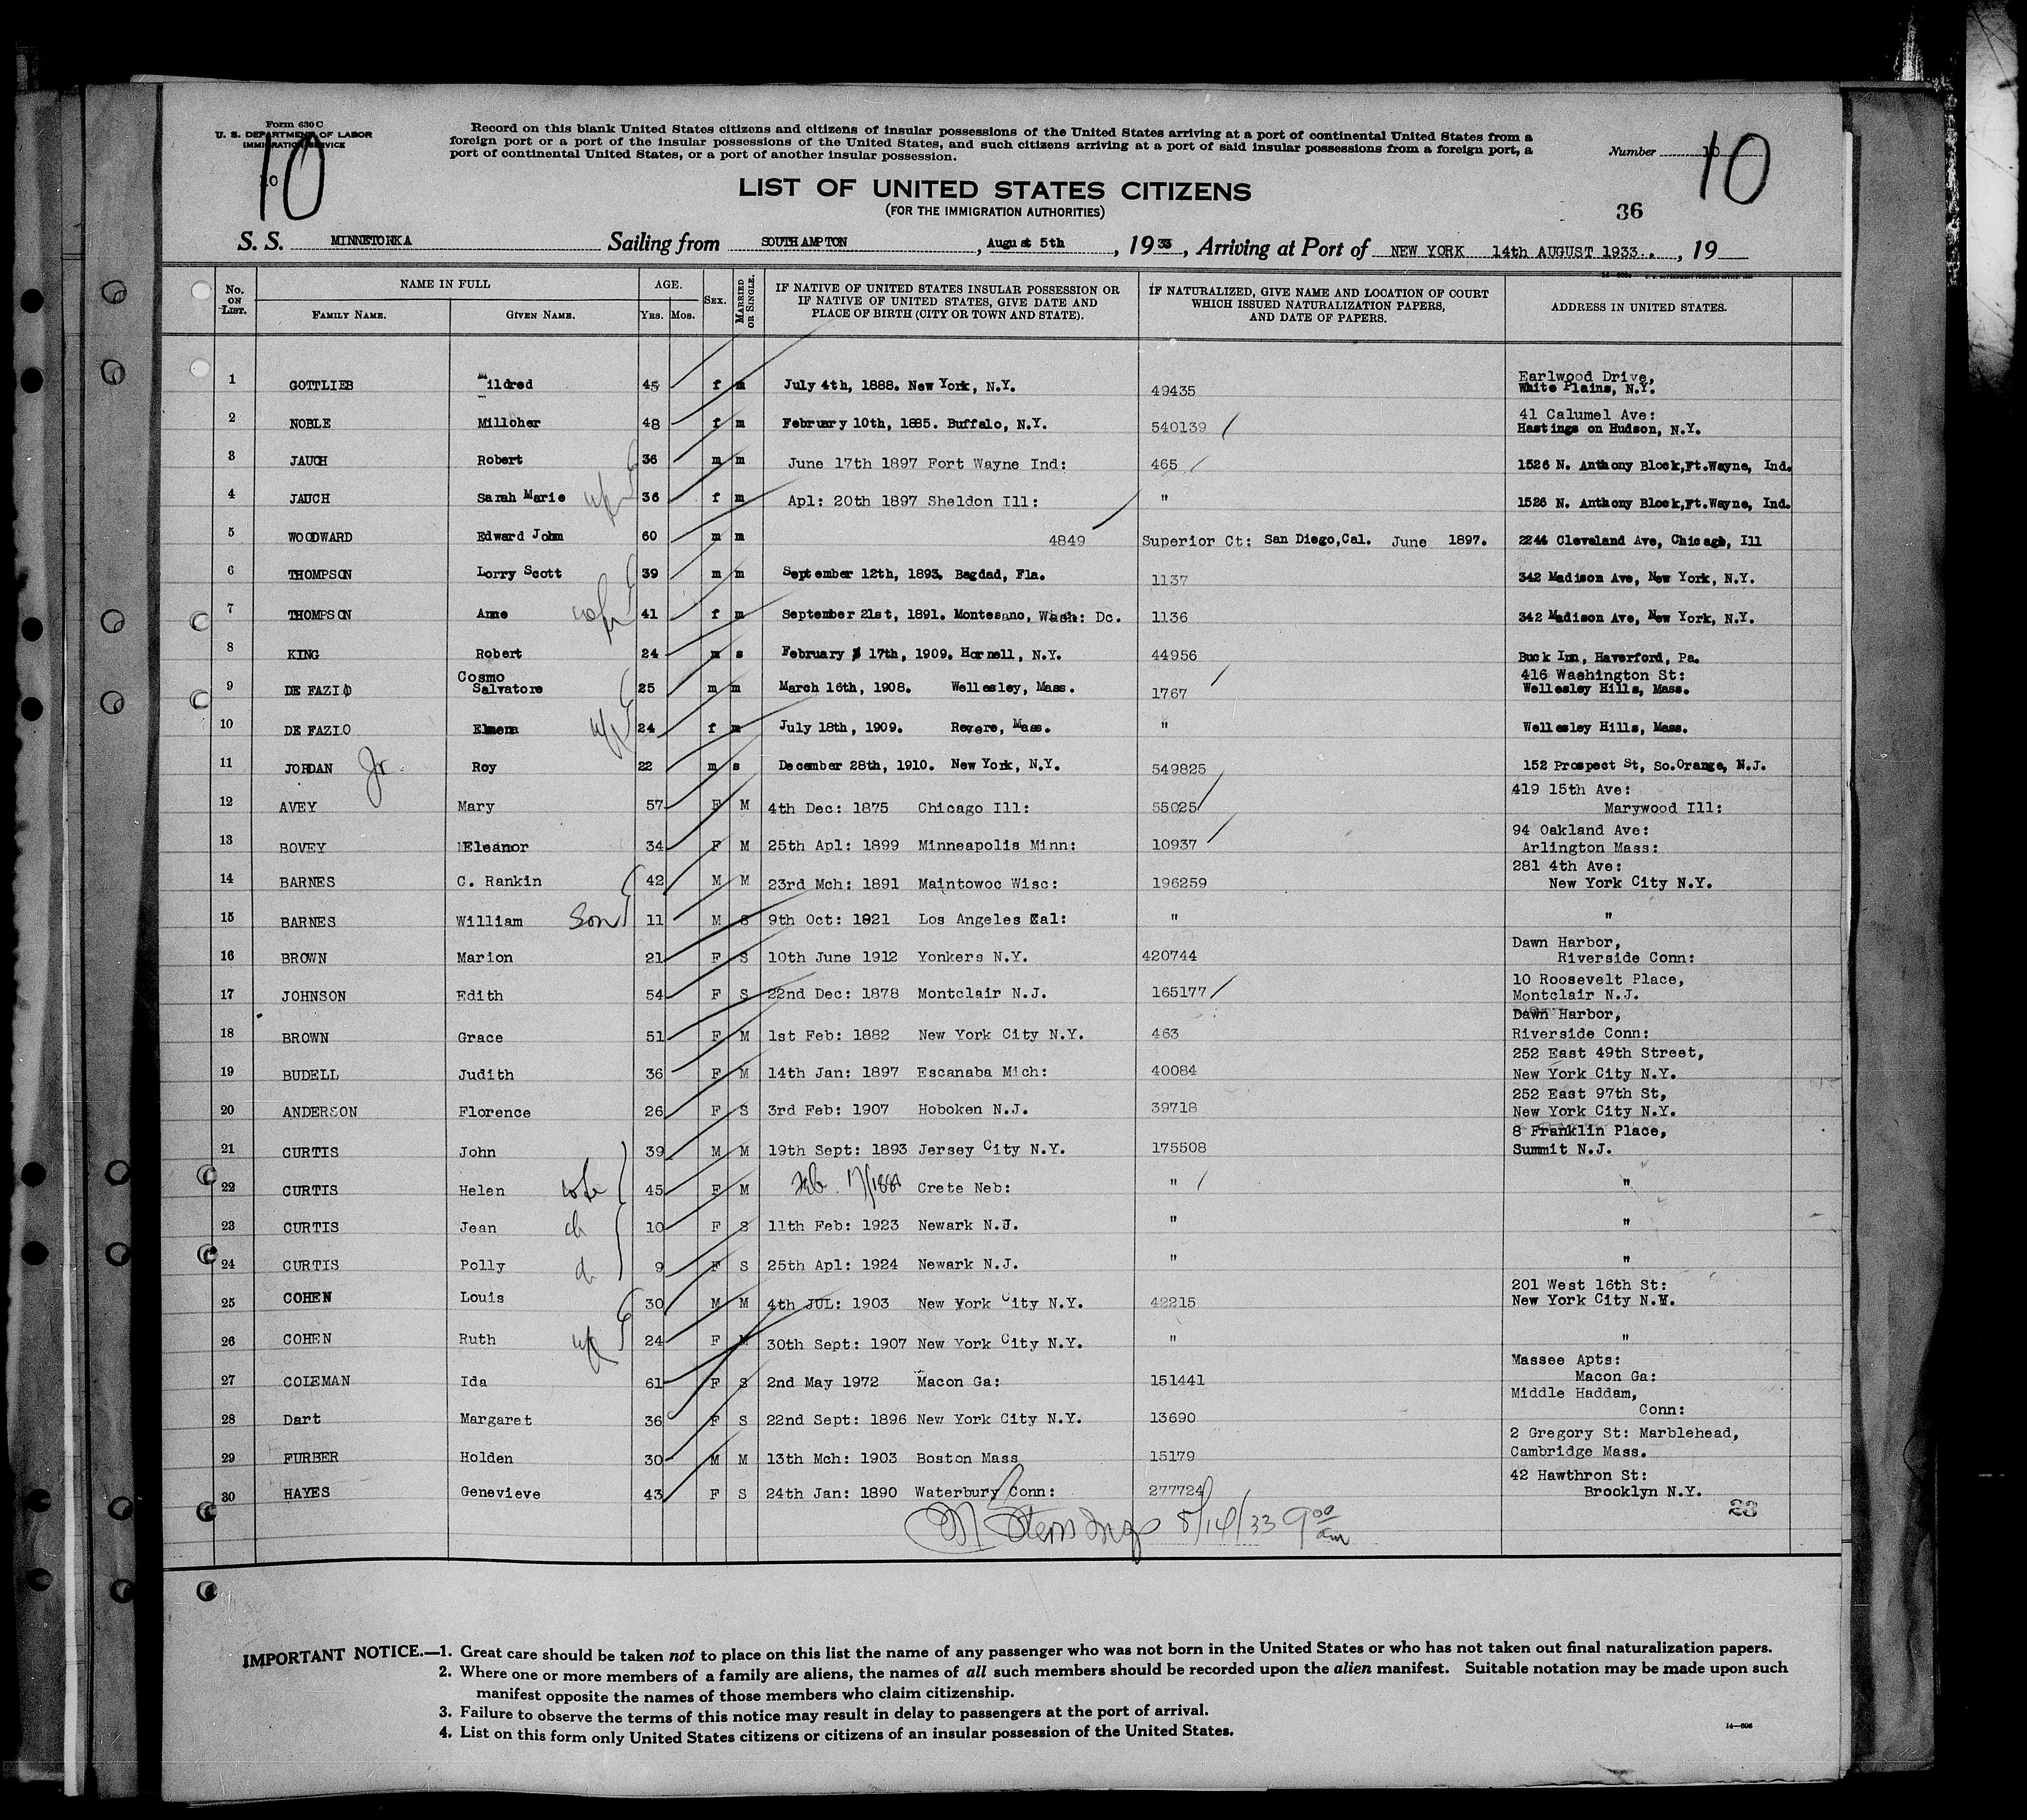 Form 630 C
U. S. DEPARTMENT OF LABOR
IMMIGRATION SERVICE
10
10
Record on this blank United States citizens and citizens of insular possessions of the United States arriving at a port of continental United States from a
foreign port or a port of the insular possessions of the United States, and such citizens arriving at a port of said insular possessions from a foreign port, a
port of continental United States, or a port of another insular possession.
Number 10
10
LIST OF UNITED STATES CITIZENS
(FOR THE IMMIGRATION AUTHORITIES)
36
S. S. MINNETONKA Sailing from SOUTHAMPTON, August 5th, 1933, Arriving at Port of NEW YORK 14th AUGUST 1933., 19
No. ON LIST. NAME IN FULL FAMILY NAME. GIVEN NAME. AGE. YRS. MOS. SEX. MARRIED OR SINGLE. IF NATIVE OF UNITED STATES INSULAR POSSESSION OR IF NATIVE OF UNITED STATES, GIVE DATE AND PLACE OF BIRTH (CITY OR TOWN AND STATE). IF NATURALIZED, GIVE NAME AND LOCATION OF COURT WHICH ISSUED NATURALIZATION PAPERS, AND DATE OF PAPERS. ADDRESS IN UNITED STATES.
1 GOTTLIEB Mildred 45 f m July 4th, 1888. New York, N.Y. 49435 Earlwood Drive, White Plains, N.Y.
2 NOBLE Millcher 48 f m February 10th, 1885. Buffalo, N.Y. 540139 41 Calumel Ave: Hastings on Hudson, N.Y.
3 JAUCH Robert 36 m m June 17th 1897 Fort Wayne Ind: 465 1526 N. Anthony Block,Ft.Wayne, Ind.
4 JAUCH Sarah Marie wf 36 f m Apl: 20th 1897 Sheldon Ill: " 1526 N. Anthony Block,Ft.Wayne, Ind.
5 WOODWARD Edward John 60 m m 4849 Superior Ct: San Diego,Cal. June 1897. 2244 Cleveland Ave, Chicago, Ill
6 THOMPSON Lorry Scott 39 m m September 12th, 1893. Bagdad, Fla. 1137 342 Madison Ave, New York, N.Y.
7 THOMPSON Anne wf 41 f m September 21st, 1891. Montesano, Wash: Dc. 1136 342 Madison Ave, New York, N.Y.
8 KING Robert 24 m s February 17th, 1909. Hornell, N.Y. 44956 Buck Inn, Haverford, Pa.
9 DE FAZIO Cosmo Salvatore 25 m m March 16th, 1908. Wellesley, Mass. 1767 416 Washington St: Wellesley Hills, Mass.
10 DE FAZIO Elmena wf 24 f m July 18th, 1909. Revere, Mass. " Wellesley Hills, Mass.
11 JORDAN Jr Roy 22 m s December 28th, 1910. New York, N.Y. 549825 152 Prospect St, So.Orange, N.J.
12 AVEY Mary 57 F M 4th Dec: 1875 Chicago Ill: 55025 419 15th Ave: Marywood Ill:
13 BOVEY Eleanor 34 F M 25th Apl: 1899 Minneapolis Minn: 10937 94 Oakland Ave: Arlington Mass:
14 BARNES C. Rankin 42 M M 23rd Mch: 1891 Maintowoc Wisc: 196259 281 4th Ave: New York City N.Y.
15 BARNES William Son 11 M S 9th Oct: 1921 Los Angeles Eal: " "
16 BROWN Marion 21 F S 10th June 1912 Yonkers N.Y. 420744 Dawn Harbor, Riverside Conn:
17 JOHNSON Edith 54 F S 22nd Dec: 1878 Montclair N.J. 165177 10 Roosevelt Place, Montclair N.J.
18 BROWN Grace 51 F M 1st Feb: 1882 New York City N.Y. 463 Dawn Harbor, Riverside Conn:
19 BUDELL Judith 36 F M 14th Jan: 1897 Escanaba Mich: 40084 252 East 49th Street, New York City N.Y.
20 ANDERSON Florence 26 F S 3rd Feb: 1907 Hoboken N.J. 39718 252 East 97th St, New York City N.Y.
21 CURTIS John 39 M M 19th Sept: 1893 Jersey City N.Y. 175508 8 Franklin Place, Summit N.J.
22 CURTIS Helen wfe 45 F M Feb. 17/1888 Crete Neb: " "
23 CURTIS Jean ch 10 F S 11th Feb: 1923 Newark N.J. " "
24 CURTIS Polly d 9 F S 25th Apl: 1924 Newark N.J. " "
25 COHEN Louis 30 M M 4th JUL: 1903 New York City N.Y. 42215 201 West 16th St: New York City N.Y.
26 COHEN Ruth wf 24 F M 30th Sept: 1907 New York City N.Y. " "
27 COLEMAN Ida 61 F S 2nd May 1972 Macon Ga: 151441 Massee Apts: Macon Ga:
28 Dart Margaret 36 F S 22nd Sept: 1896 New York City N.Y. 13690 Middle Haddam, Conn:
29 FURBER Holden 30 M M 13th Mch: 1903 Boston Mass 15179 2 Gregory St: Marblehead, Cambridge Mass.
30 HAYES Genevieve 43 F S 24th Jan: 1890 Waterbury Conn: 277724 42 Hawthron St: Brooklyn N.Y.
8/14/33 9 00 am
28
IMPORTANT NOTICE.—1. Great care should be taken not to place on this list the name of any passenger who was not born in the United States or who has not taken out final naturalization papers.
2. Where one or more members of a family are aliens, the names of all such members should be recorded upon the alien manifest. Suitable notation may be made upon such
manifest opposite the names of those members who claim citizenship.
3. Failure to observe the terms of this notice may result in delay to passengers at the port of arrival.
4. List on this form only United States citizens or citizens of an insular possession of the United States.
14—606